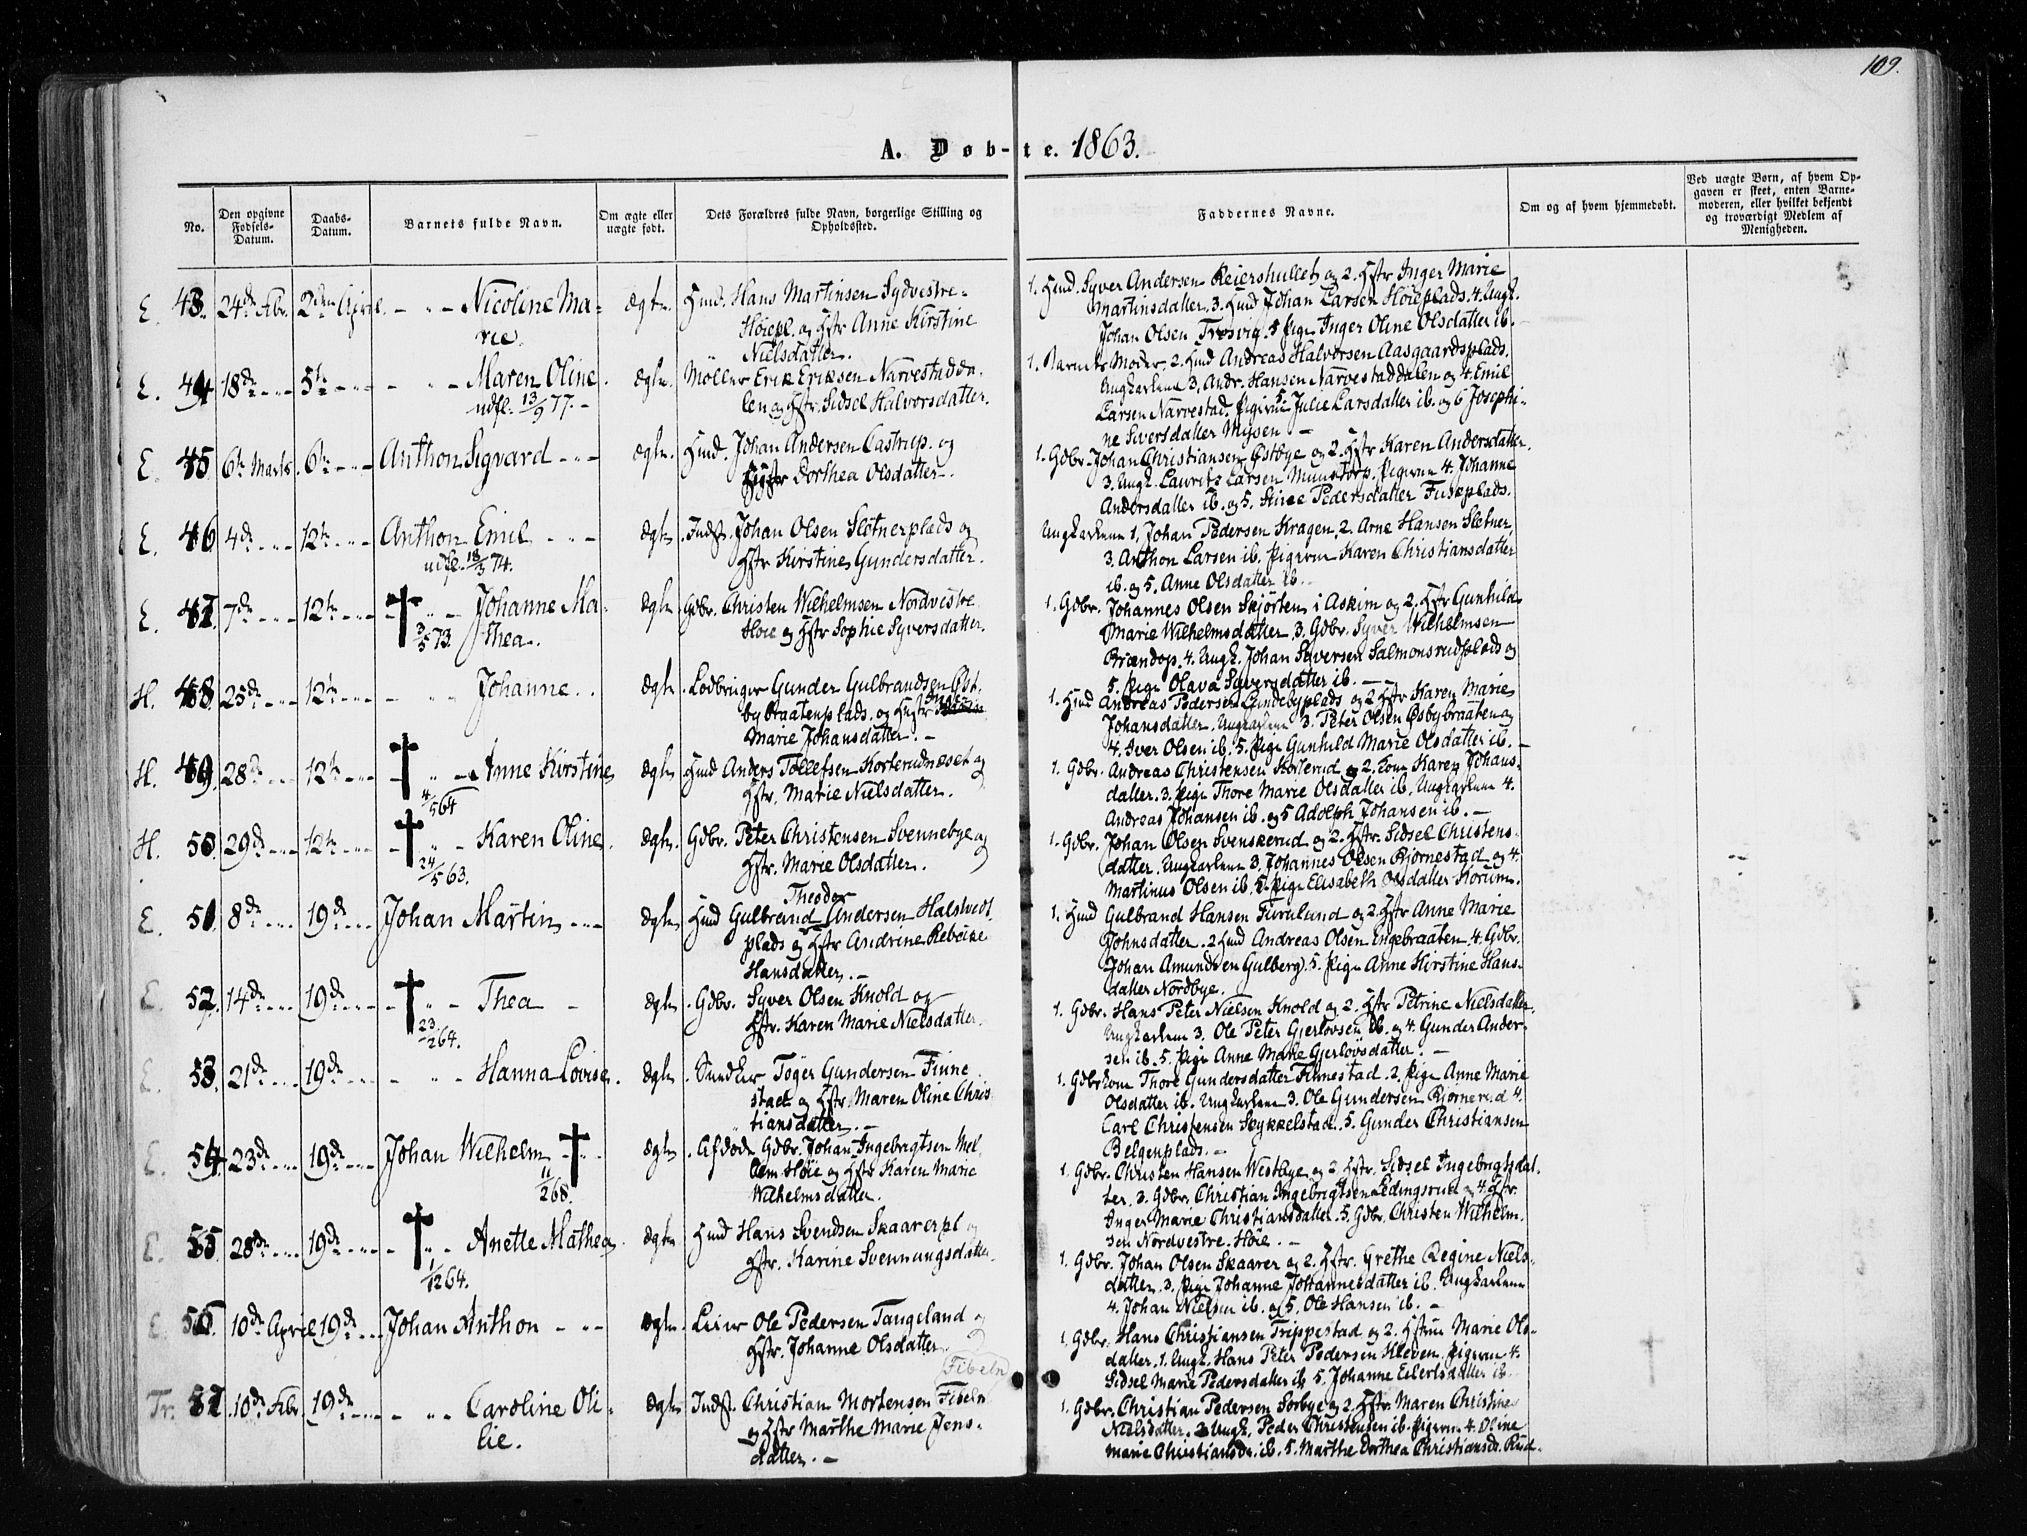 109.
A. Døbte. 1863.
No.
Den opgivne Fødsels-Datum.
Daabs-Datum.
Barnets fulde Navn.
Om ægte eller uægte født.
Dets Forældres fulde Navn, borgerlige Stilling og Opholdssted.
Faddernes Navne.
Om og af hvem hjemmedøbt.
Ved uægte Børn, af hvem Opgaven er skeet, enten Barnemoderen, eller hvilket bekjendt og troværdigt Medlem af Menigheden.
E. 43. 24de Febr. 2den April. Nicoline Marie. Ægte. Husmd. Hans Martinsen Sydvestre-
Høiepl. og Hstr Anne Kirstine
Nielsdatter.
1. Husmd. Syver Andersen Reiershullet og 2. Hstr Inger Marie
Martinsdatter. 3. Husmd Johan Larsen Høieplads. 4. Ungk.
Johan Olsen Tresvig. 5 Pige Inger Oline Olsdatter ib.
E. 44 18de 5te Maren Oline. udfl. 13/9 77. Ægte. Møller Erik Eriksen Narvestadda-
len og Hstr. Sidsel Halvorsdatter.
1. Barnets Moder. 2. Husmd Andreas Halvorsen Aasgaardsplads.
Ungkarlene 3. Andr. Hansen Narvestaddalen og 4. Emil
Larsen Narvestad. Pigerne 5 Julie Larsdatter ib. og 6 Josephi-
ne Siversdatter Mysen
E. 45 6te Marts. 6te Anthon Sigvard Ægte. Husmd. Johan Andersen Castrup. og
Hstr Dorthea Olsdatter.
1. Gdbr. Johan Christiansen Østbye og 2. Hstr Karen Andersdatter.
3. Ungk. Laurits Larsen Munstorp. Pigerne 4. Johanne
Andersdatter ib. og 5. Stine Pedersdatter Fuskplads.
E. 46 4de 12te Anthon Emil udfl. 18/3 74. Ægte. Indst. Johan Olsen Sletnerplads og
Hstr Kirstine Gundersdatter.
Ungkarlene 1. Johan Pedersen Kragen. 2. Arne Hansen Sletner
3. Anthon Larsen ib. Pigerne Karen Christiansdatter
ib. og 5. Anne Olsdatter ib.
E. 47. 7de 12te Johanne Mathea. 3/5 73. Ægte. Gdbr. Christen Wilhelmsen Nordvestre
Høie og Hstr Sophie Syversdatter.
1. Gdbr. Johannes Olsen Skjørten i Askim og 2. Hstr Gunhild
Marie Wilhelmsdatter. 3. Gdbr. Syver Wilhelmsen
Brændop. 4. Ungk. Johan Syversen Salmonsrudplads og
5. Pige Olava Syversdatter ib.
H. 48. 25de 12te Johanne. Ægte. Lodbruger Gunder Gulbrandsen Øst-
bybraatenplads. og Hustr
Marie Johansdatter.
1. Husmd Andreas Pedersen Lundebyplads og 2 Hstr Karen Marie
Johansdatter. Ungkarlene 3. Peter Olsen Østbybraaten og
4. Iver Olsen ib. 5. Pige Gunhild Marie Olsdatter ib.
H. 49. 28de 12te Anne Kirstine 4/5 64 Ægte Husmd Anders Tollefsen Korterudnæset og
Hstr. Marie Nielsdatter.
1. Gdbr. Andreas Christensen Korterud og 2. Kone Karen Johans-
datter. 3. Pige Thore Marie Olsdatter ib. Ungkarlene 4.
Andreas Johansen ib. og 5 Adolph Johansen ib.
H. 50. 29de 12te Karen Oline. 24/5 63. Ægte. Gdbr. Peter Christensen Svennebye og
Hstr. Marie Olsdatter.
1. Gdbr. Johan Olsen Svenskerud og 2. Hstr. Sidsel Christens-
datter. Ungkarlene 3. Johannes Olsen Bjørnestad og 4.
Martinus Olsen ib. 5. Pige Elisabeth Olsdatter Korum.
E. 51. 8de 19de Johan Martin Ægte Husmd Gulbrand Theodor Andersen Halstvedt
plads og Hstr Andrine Rebecke
Hansdatter.
1. Husmd Gulbrand Hansen Furulund og 2. Hstr Anne Marie
Johnsdatter. 2 Husmd Andreas Olsen Engebraaten. 4. Gdbr.
Johan Amundsen Gulberg. 5. Pige Anne Kirstine Hans-
datter Nordbye.
E. 52. 14de 19de Thea 23/2 64. Ægte. Gdbr. Syver Olsen Knold og
Hstr. Karen Marie Nielsdatter.
1. Gdbr. Hans Peter Nielsen Knold og 2. Hstr Petrine Nielsdatter.
Ungkarlene 3. Ole Peter Gjerløvsen ib. og 4 Gunder Ander-
sen ib. 5. Pige Anne Marie Gjerløvsdatter.
E. 53. 21de 19de Hanna Lovise. Ægte. Snedker Tøger Gundersen Finne-
stad og Hstr. Maren Oline Chris-
tiansdatter.
1. Gdbrkone Thore Gundersdatter Finnestad. 2. Pige Anne Marie
Olsdatter ib. Ungkarlene 3. Ole Gundersen Bjørnerud 4.
Carl Christensen Stykkelstad. 5. Gunder Christiansen
Belgenplads.
E. 54. 23de 19de Johan Wilhelm 11/2 68. Ægte. Afdøde Gdbr. Johan Ingebrigtsen Mel-
lem Høie og Hstr Karen Marie
Wilhelmsdatter.
1. Gdbr. Christen Hansen Westbye og 2. Hstr. Sidsel Ingebrigtsdat-
ter. 3. Gdbr. Christian Ingebrigtsen Ledingsrud og 4. Hstr.
Inger Marie Christiansdatter. 5. Gdbr. Christen Wilhelm-
sen Nordvestre Høie.
E. 55. 28de 19de Anette Mathea. 1/12 64. Ægte Husmd Hans Svendsen Skaarerpl og
Hstr. Karine Svenningsdatter.
1. Gdbr. Johan Olsen Skaarer og 2. Hstr. Grethe Regine Niels-
datter. 3. Pige Johanne Johannesdatter ib. Ungkarlene
4. Johan Nielsen ib. og 5. Ole Hansen ib.
E. 56. 10de April 19de Johan Anthon Ægte. Leier Ole Pedersen Tangeland og
Hstr. Johanne Olsdatter.
1. Gdbr. Hans Christiansen Trippestad og 2. Hstru Marie Ols-
datter. 1. Ungk. Hans Peter Pedersen Kleven. Pigerne 4.
Sidsel Marie Pedersdatter ib 5. Johanne Eilertsdatter ib.
Tr. 57. 10de Febr. 19de Caroline Olilie. Ægte Indst. Christian Mortensen Fibeln
(Fibeln)
og Hstr Marthe Marie Jens-
datter.
1. Gdbr. Christian Pedersen Sørbye og 2. Hstr Maren Christine
Nielsdatter. 3 Ungk. Peder Christensen ib. Pigerne 4. Oline
Marie Christiansdr. ib. 5. Marthe Dorthea Christiansdr. Rud